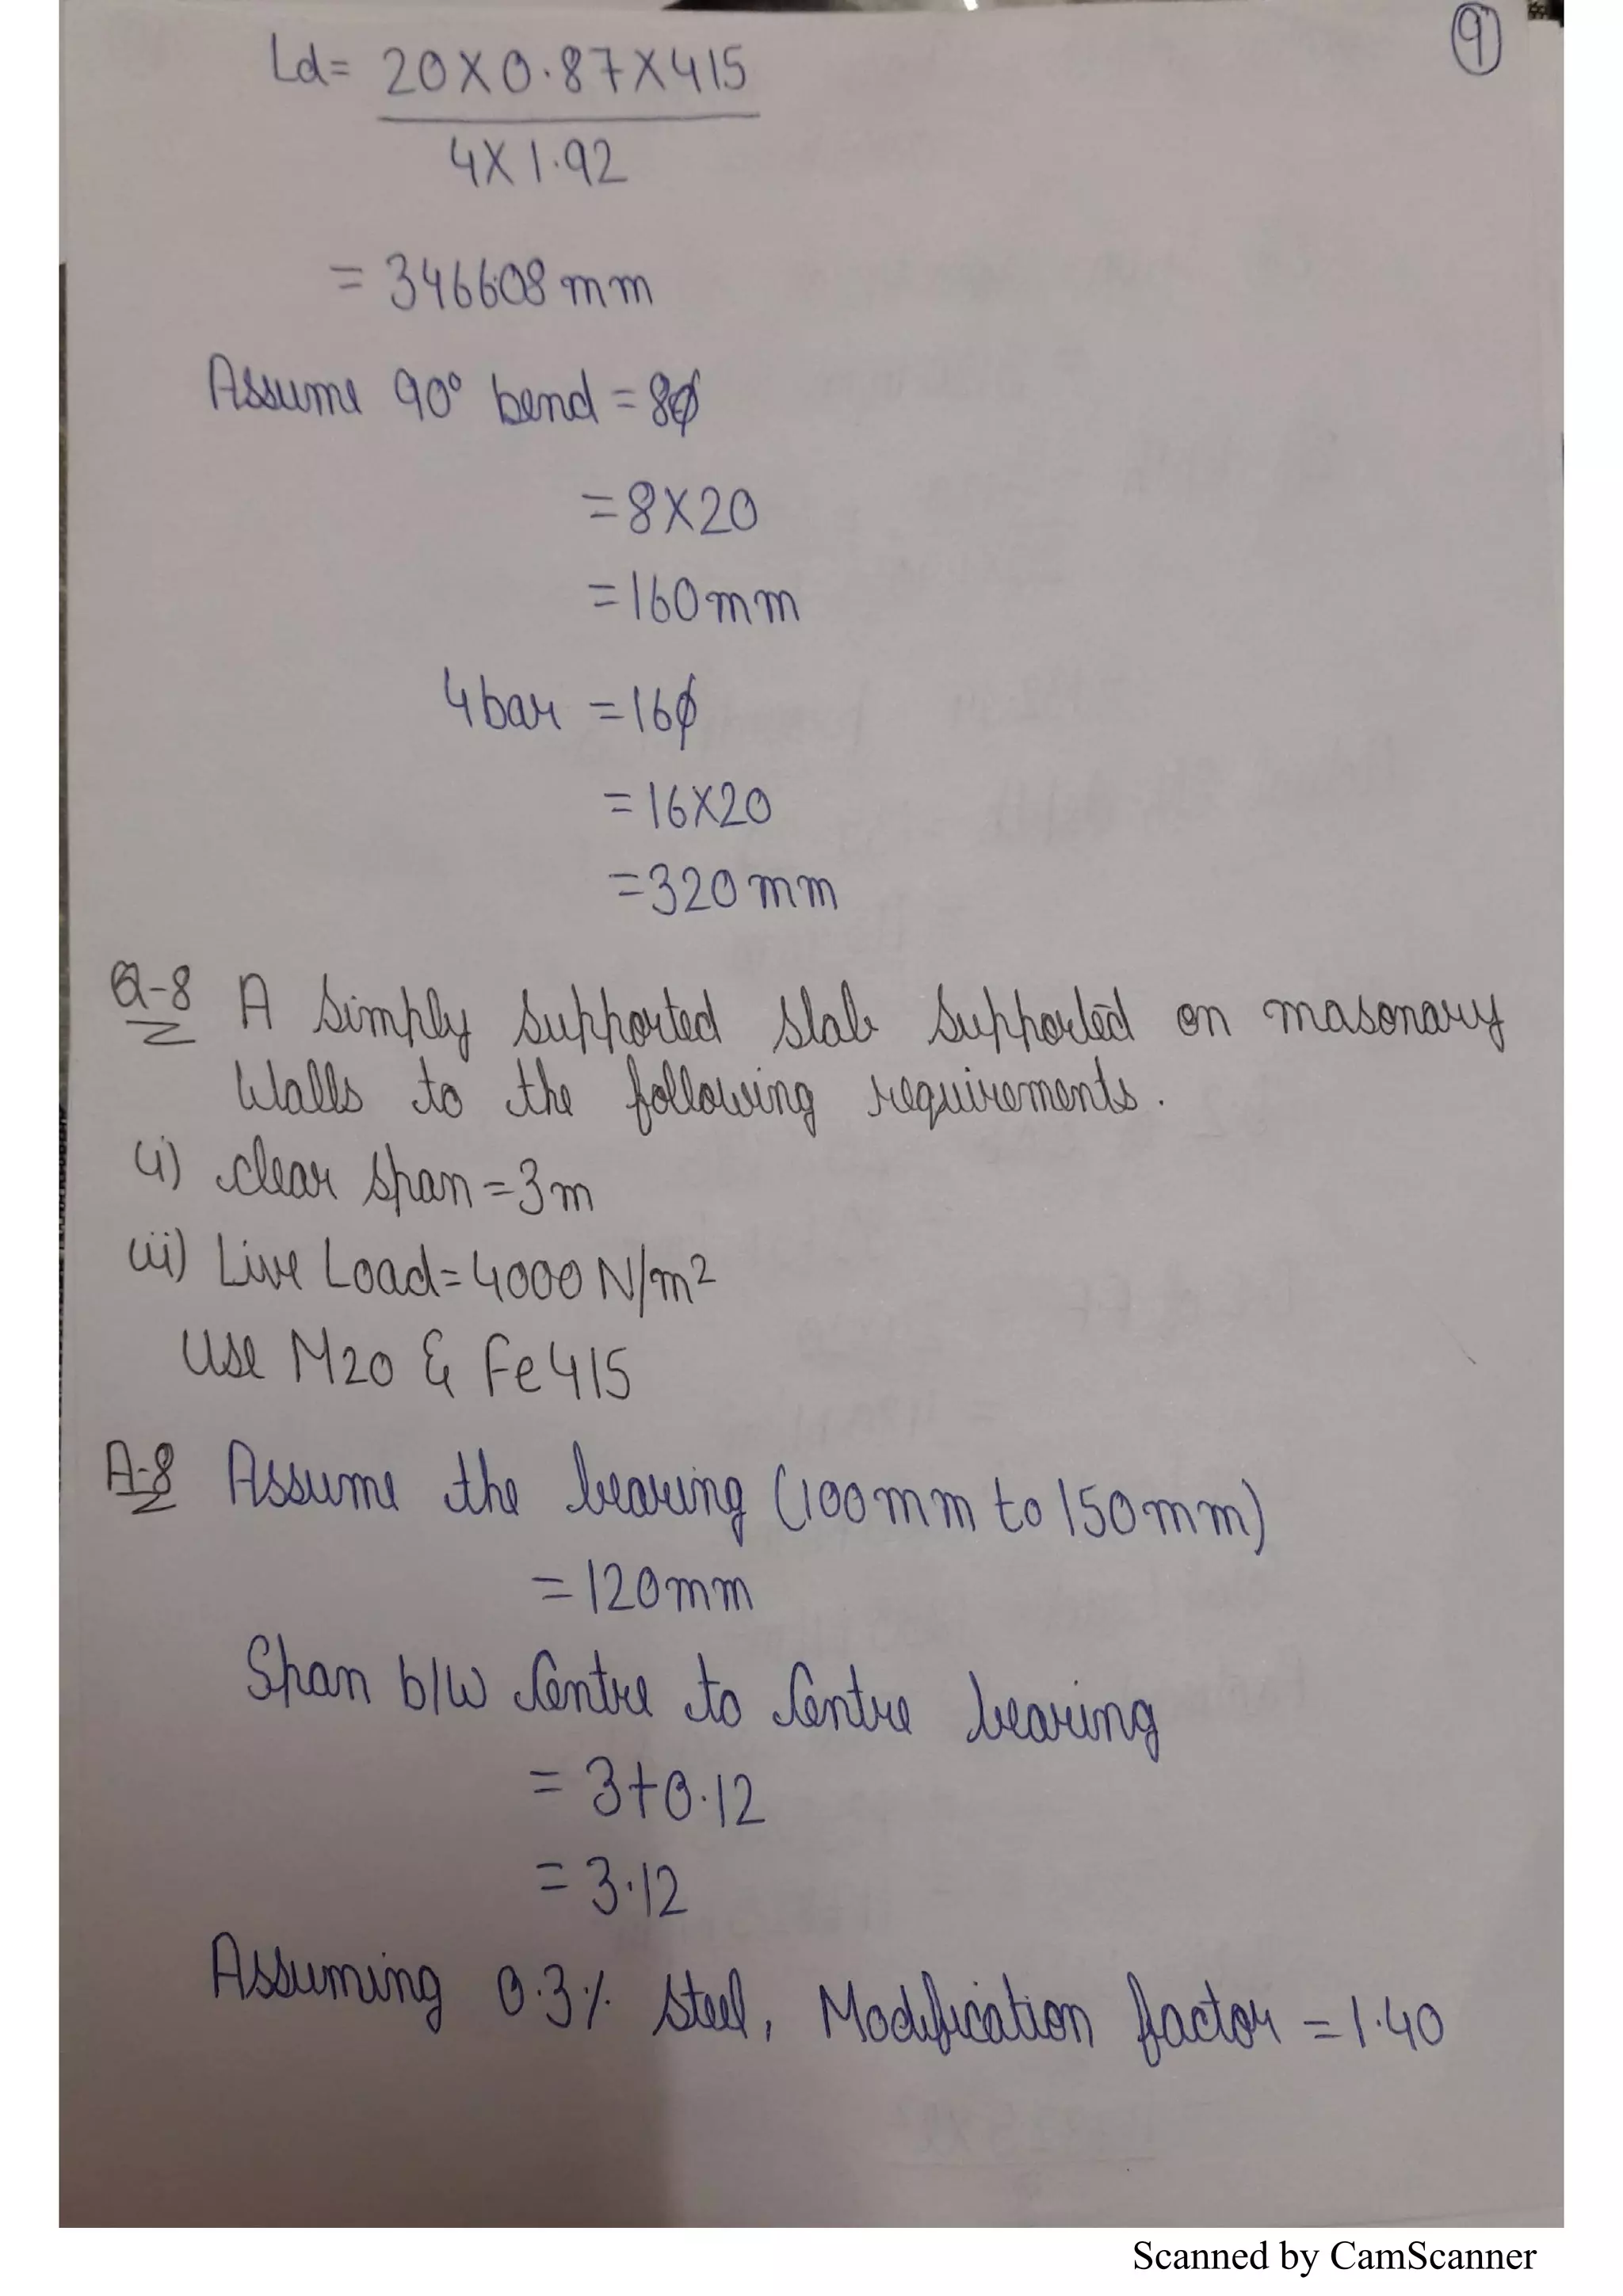 9
Ld = 20X0.87X415
4X1.92
= 346608 mm
Assume 90° bend = 8ϕ
= 8X20
= 160mm
4bar = 16ϕ
= 16X20
= 320mm
Q-8 A simply supported slab supported on masonary
Walls to the following requirements.
(i) clear span = 3m
(ii) Live Load = 4000 N/m²
Use M20 & Fe415
A-8 Assume the bearing (100mm to 150mm)
= 120mm
Span b/w Centre to Centre bearing
= 3+0.12
= 3.12
Assuming 0.3% steel, Modification factor = 1.40
Scanned by CamScanner